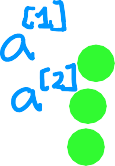 a[1]
a[2]